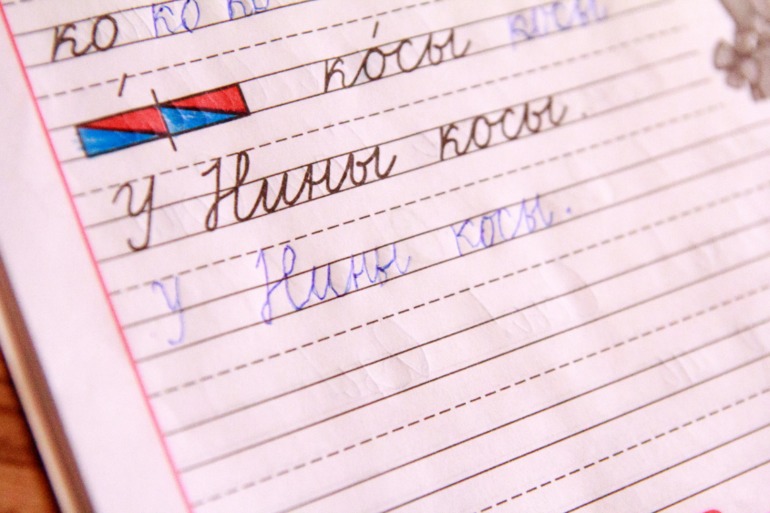 ко ко ко
ко́сы косы
У Нины косы.
У Нины косы.